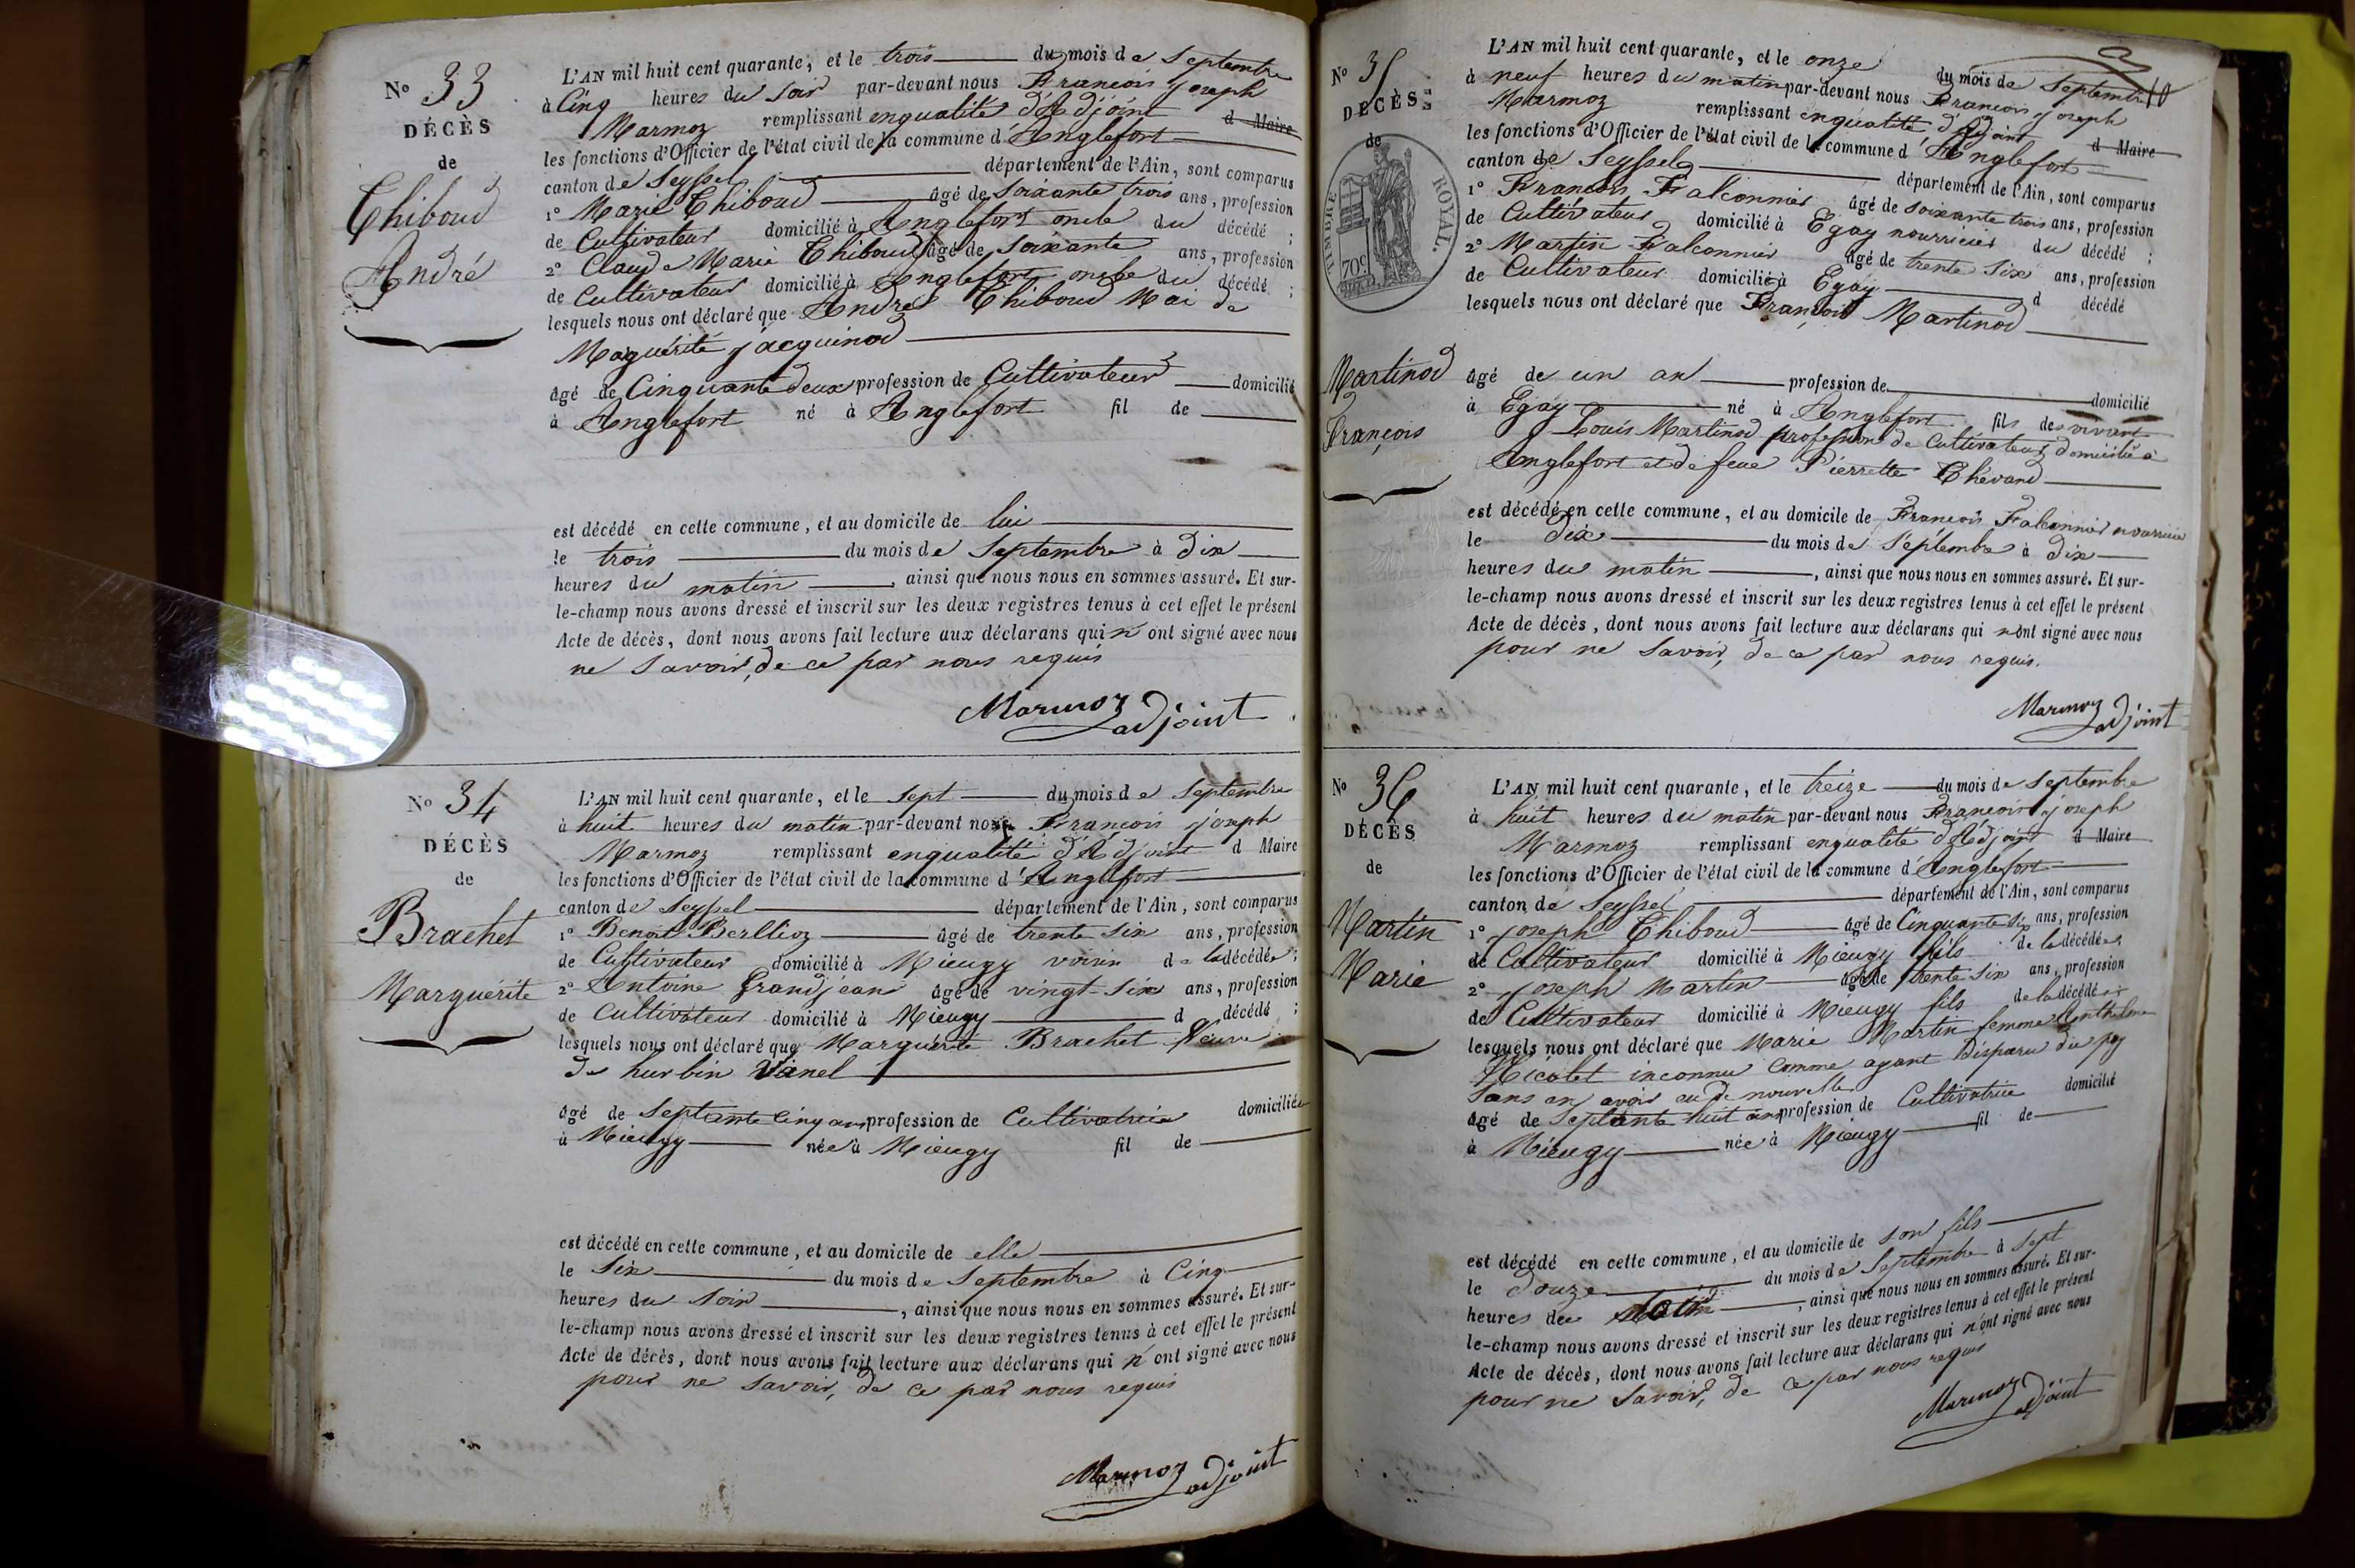 N° 33
DÉCÈS
de
Thiboud
André
L'AN mil huit cent quarante, et le trois du mois de Septembre
à Cinq heures du soir par-devant nous François Joseph
Marmoz remplissant enqualité d'Adjoint d Maire
les fonctions d'Officier de l'état civil de la commune d'Anglefort
canton de Seyssel département de l'Ain, sont comparus
1° Marie Thiboud âgé de soixante trois ans, profession
de Cultivateur domicilié à Anglefort oncle du décédé ;
2° Claude Marie Thiboud âgé de soixante ans, profession
de Cultivateur domicilié à Anglefort oncle du décédé ;
lesquels nous ont déclaré que André Thiboud Mai de
Marguérite Jacquinod
âgé de Cinquante deux profession de Cultivateur domicilié
à Anglefort né à Anglefort fil de
est décédé en cette commune, et au domicile de lui
le trois du mois de Septembre à dix
heures du matin, ainsi que nous nous en sommes assuré. Et sur-
le-champ nous avons dressé et inscrit sur les deux registres tenus à cet effet le présent
Acte de décès, dont nous avons fait lecture aux déclarans qui n'ont signé avec nous
ne savoir, de ce par nous requis
Marmoz adjoint
N° 34
DÉCÈS
de
Brachet
Marguérite
L'AN mil huit cent quarante, et le sept du mois de Septembre
à huit heures du matin par-devant nous François Joseph
Marmoz remplissant enqualité d'Adjoint d Maire
les fonctions d'Officier de l'état civil de la commune d'Anglefort
canton de Seyssel département de l'Ain, sont comparus
1° Benoit Berlioz âgé de trente six ans, profession
de Cultivateur domicilié à Mieugy voisin de la décédée ;
2° Antoine Grandjean âgé de vingt-six ans, profession
de Cultivateur domicilié à Mieugy d décédé ;
lesquels nous ont déclaré que Marguérite Brachet Veuve
de hurbin Vanel
âgé de Septante Cinq ans profession de Cultivatrice domiciliée
à Mieugy née à Mieugy fil de
est décédé en cette commune, et au domicile de elle
le six du mois de Septembre à Cinq
heures du soir, ainsi que nous nous en sommes assuré. Et sur-
le-champ nous avons dressé et inscrit sur les deux registres tenus à cet effet le présent
Acte de décès, dont nous avons fait lecture aux déclarans qui n'ont signé avec nous
pour ne savoir, de ce par nous requis
Marmoz adjoint
10
N° 35
DÉCÈS
de
TIMBRE ROYAL.
70c
Martinod
François
L'AN mil huit cent quarante, et le onze du mois de Septembre
à neuf heures du matin par-devant nous François Joseph
Marmoz remplissant enqualité d'Adjoint d Maire
les fonctions d'Officier de l'état civil de la commune d'Anglefort
canton de Seyssel département de l'Ain, sont comparus
1° François Falconnier âgé de soixante trois ans, profession
de Cultivateur domicilié à Egay nourricier du décédé ;
2° Martin Falconnier âgé de trente six ans, profession
de Cultivateur domicilié à Egay d décédé
lesquels nous ont déclaré que François Martinod
âgé de un an profession de domicilié
à Egay né à Anglefort fils de vivant
Louis Martinod profession de Cultivateur domicilié à
Anglefort et de feue Pierrette Chevard
est décédé en cette commune, et au domicile de François Falconnier nourricier
le dix du mois de Septembre à dix
heures du matin, ainsi que nous nous en sommes assuré. Et sur-
le-champ nous avons dressé et inscrit sur les deux registres tenus à cet effet le présent
Acte de décès, dont nous avons fait lecture aux déclarans qui n'ont signé avec nous
pour ne savoir, de ce par nous requis.
Marmoz adjoint
N° 36
DÉCÈS
de
Martin
Marie
L'AN mil huit cent quarante, et le treize du mois de Septembre
à huit heures du matin par-devant nous François Joseph
Marmoz remplissant enqualité d'Adjoint d Maire
les fonctions d'Officier de l'état civil de la commune d'Anglefort
canton de Seyssel département de l'Ain, sont comparus
1° Joseph Thiboud âgé de Cinquante six ans, profession
de Cultivateur domicilié à Mieugy fils de la décédée
2° Joseph Martin âgé de trente six ans, profession
de Cultivateur domicilié à Mieugy fils de la décédée
lesquels nous ont déclaré que Marie Martin femme Anthelme
Nicolet inconnu comme ayant disparu du pay
sans en avoir eu de nouvelle
âgé de Septante huit ans profession de Cultivatrice domicilié
à Mieugy née à Mieugy fil de
est décédé en cette commune, et au domicile de son fils
le douze du mois de Septembre à sept
heures du matin, ainsi que nous nous en sommes assuré. Et sur-
le-champ nous avons dressé et inscrit sur les deux registres tenus à cet effet le présent
Acte de décès, dont nous avons fait lecture aux déclarans qui n'ont signé avec nous
pour ne savoir, de ce par nous requis
Marmoz adjoint